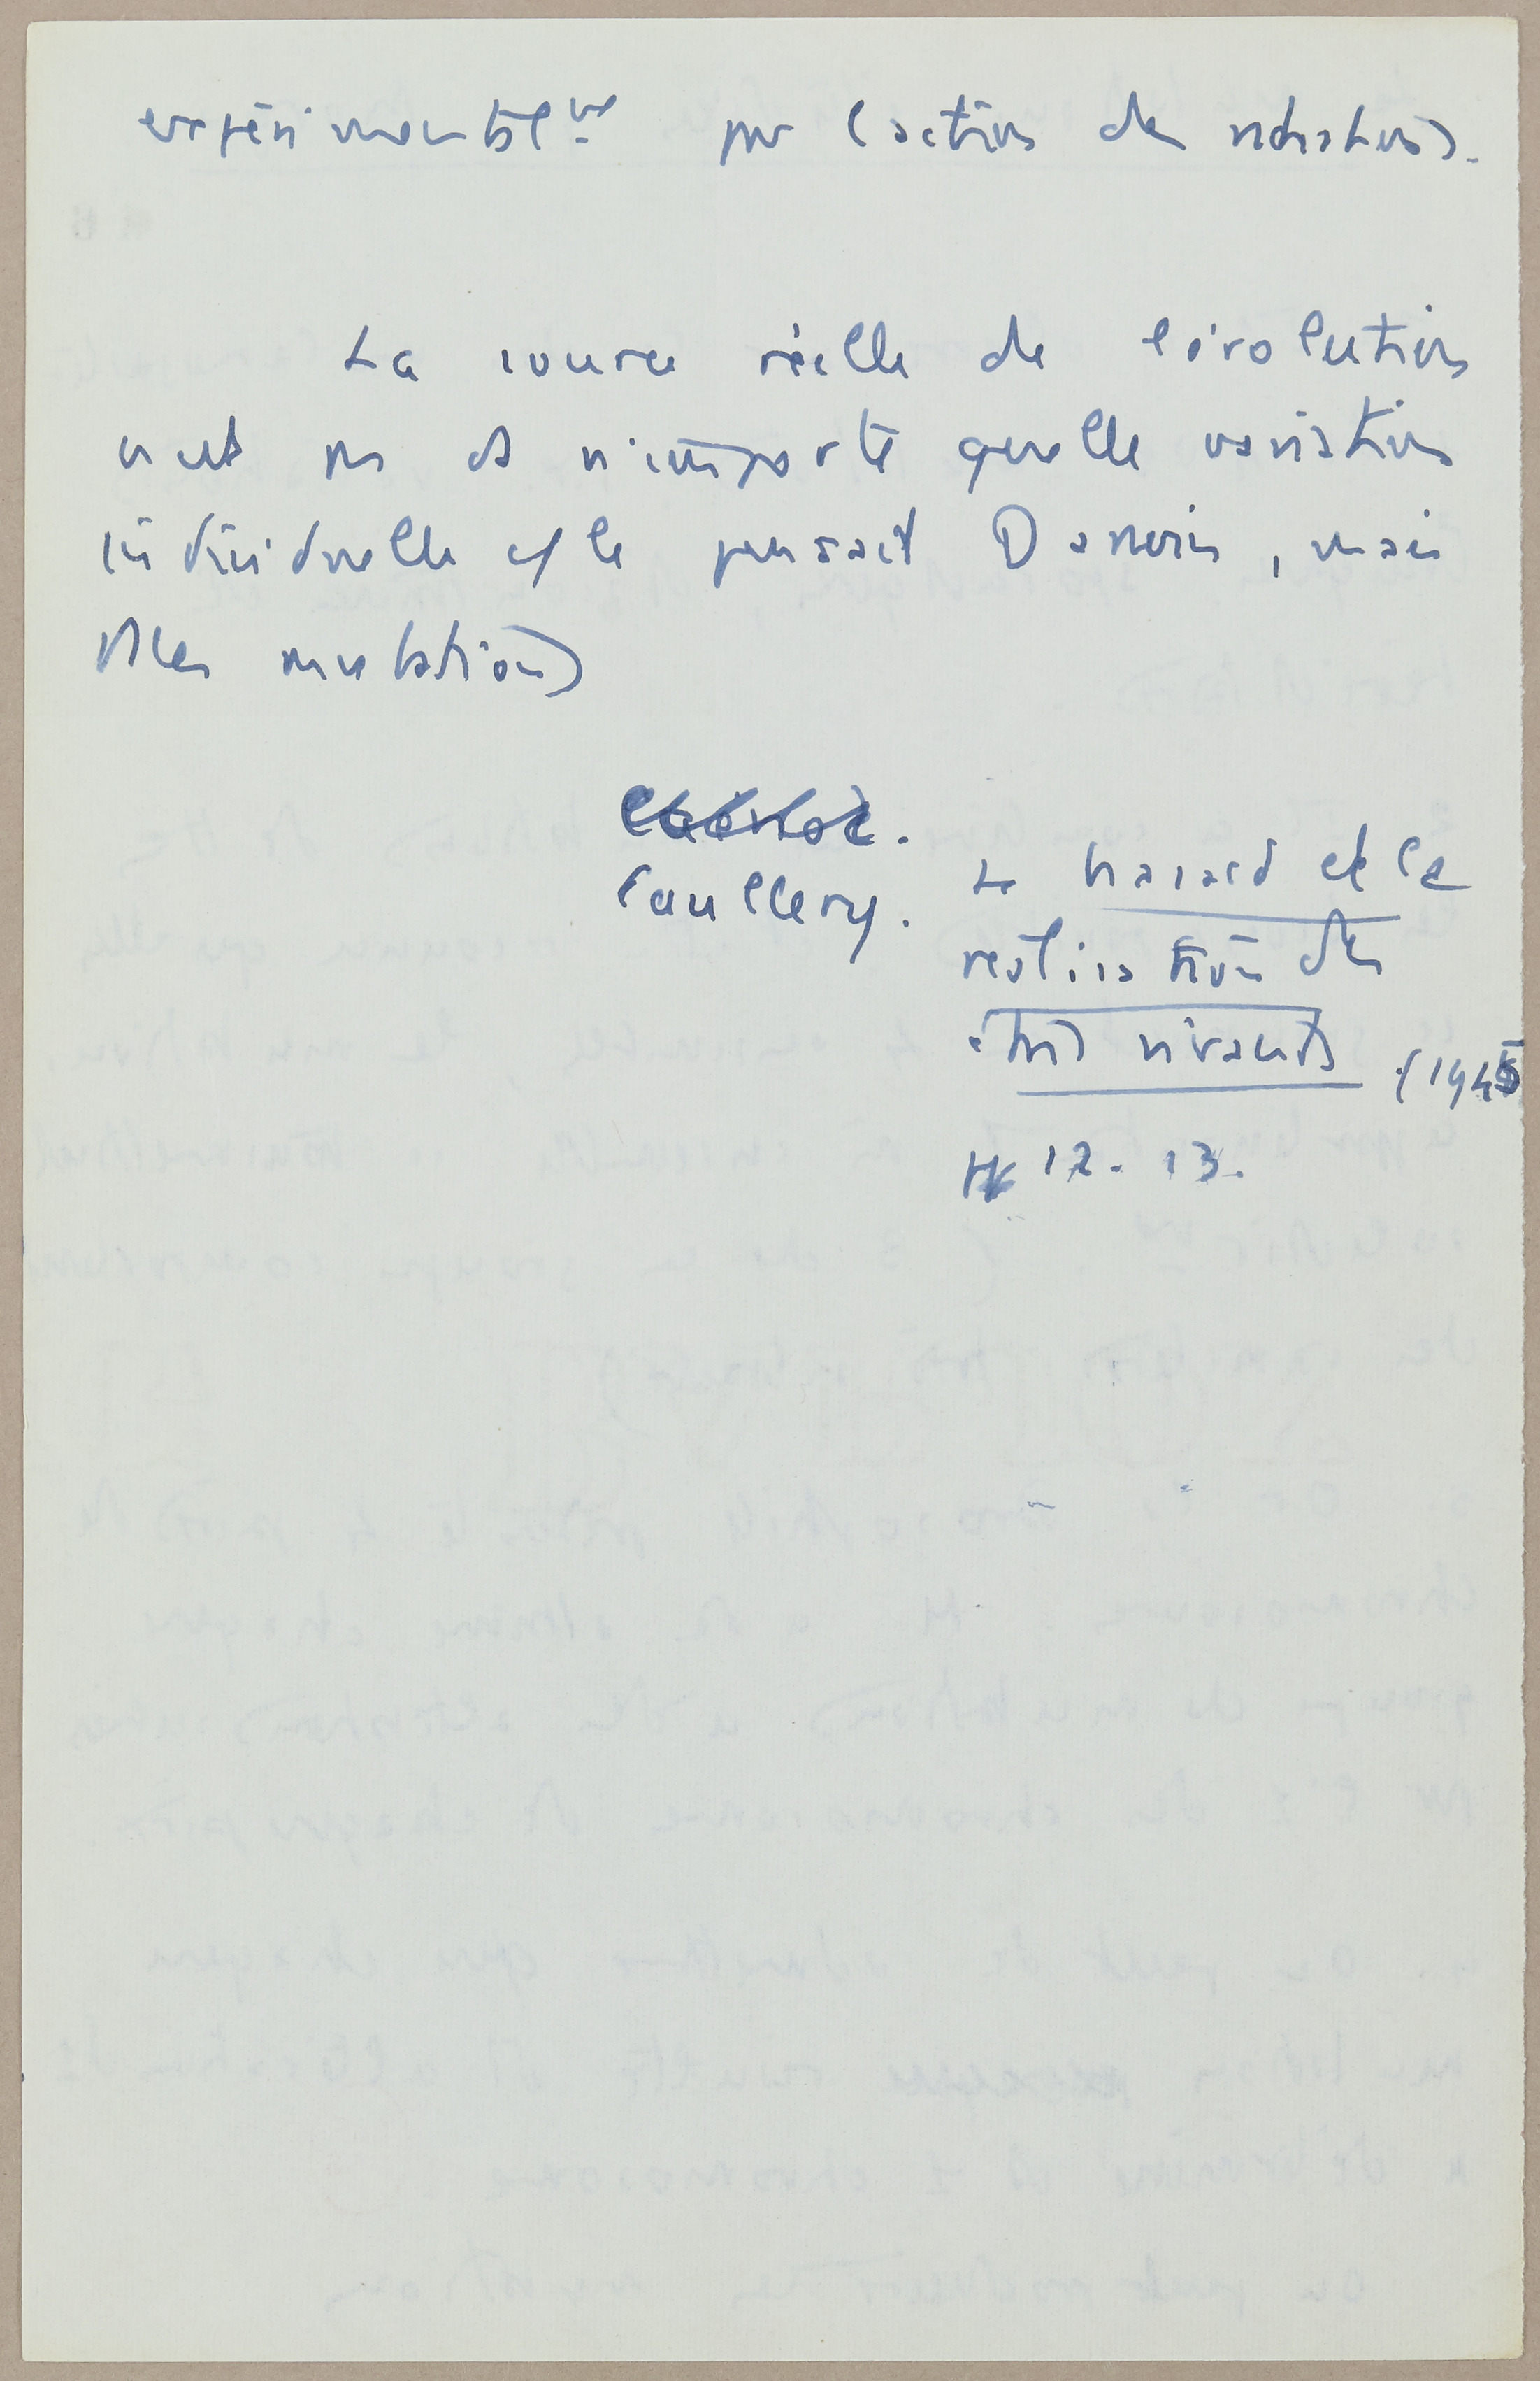 expérimentalᵐᵉ par l'action de radiations.
La source réelle de l'évolution
n'est pas ds n'importe quelle variation
individuelle c/ le pensait Darwin, mais
ds les mutations
Cuénot.
Caullery. Le hasard et la
réalisation des
êtres vivants (1945
12. 13.